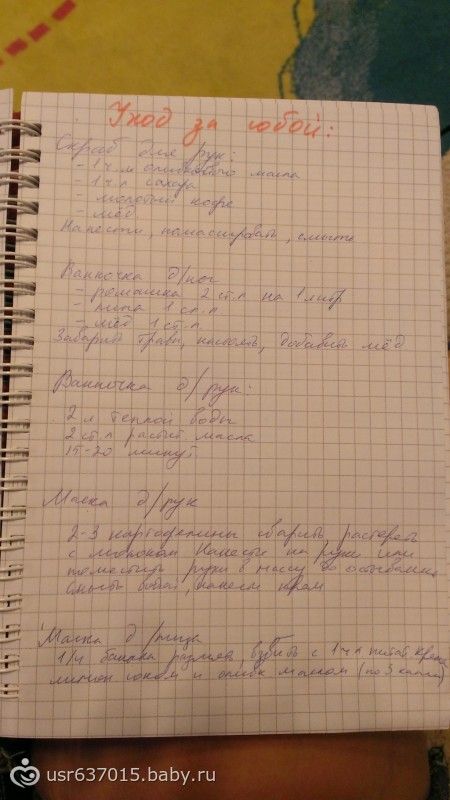 Уход за собой:
Скраб для рук:
- 1 ч.л оливкового масла
- 1 ч л сахара
- молотый кофе
- мёд
Нанести, помассировать, смыть
Ванночка д/ног
- ромашка 2 ст.л на 1 литр
- липа 1 ст.л
- мёд 1 ст.л
Заварить травы, настоять, добавить мёд
Ванночка д/рук:
2 л теплой воды
2 ст л растит масла
15-20 минут
Маска д/рук
2-3 картофелины сварить растереть
с молоком Нанести на руки или
поместить руки в массу до остывания
смыть водой, нанести крем
Маска д/лица
1/4 банана размять, взбить с 1 ч л питат крема
лимон соком и оливк маслом (по 3 капли)
usr637015.baby.ru